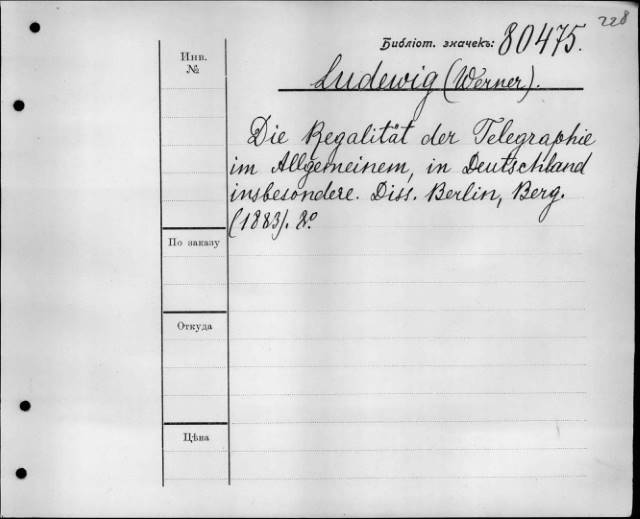 228
Библіот. значекъ: 80475.
Инв.
№
Ludewig (Werner).
Die Regalität der Telegraphie
im Allgemeinem, in Deutschland
insbesondere. Diss. Berlin, Berg.
(1883). 8º
По заказу
Откуда
Цѣна